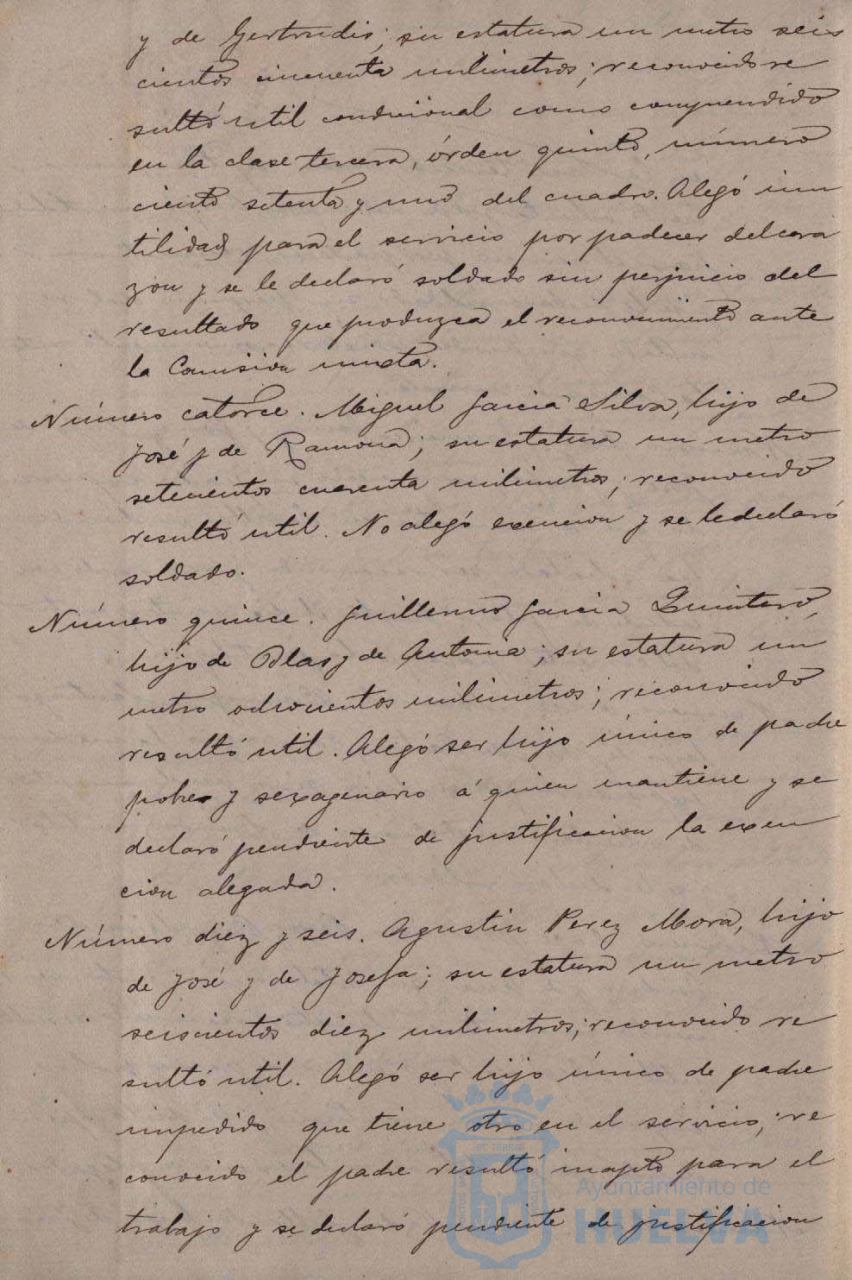 y de Gertrudis; su estatura un metro seis
cientos cincuenta milimetros; reconocido re
sultó util condicional como comprendido
en la clase tercera, órden quinto, número
ciento setenta y uno del cuadro. Alegó inu
tilidad para el servicio por padecer del cora
zon y se le declaró soldado sin perjuicio del
resultado que produzca el reconocimiento ante
la Comision mixta.
Número catorce. Miguel Garcia Silva, hijo de
José y de Ramona; su estatura un metro
setecientos cuarenta milimetros; reconocido
resultó util. No alegó exencion y se le declaró
soldado.
Número quince. Guillermo Garcia Quintero,
hijo de Blas y de Antonia; su estatura un
metro ochocientos milimetros; reconocido
resultó util. Alegó ser hijo único de padre
pobre y sexagenario á quien mantiene y se
declaró pendiente de justificacion la exen
cion alegada.
Número diez y seis. Agustin Perez Mora, hijo
de José y de Josefa; su estatura un metro
seiscientos diez milimetros; reconocido re
sultó util. Alegó ser hijo único de padre
impedido que tiene otro en el servicio; re
conocido el padre resultó inapto para el
trabajo y se declaró pendiente de justificacion
Ayuntamiento de
HUELVA